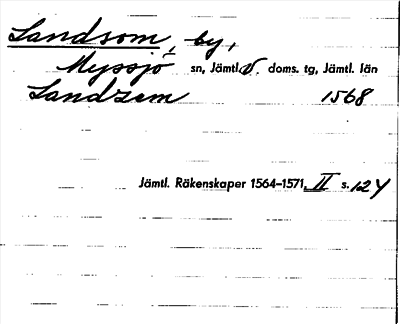 Landsom, by,
Myssjö sn, Jämtl. V. doms. tg, Jämtl. län
Landzem 1568
Jämtl. Räkenskaper 1564–1571, II s. 124